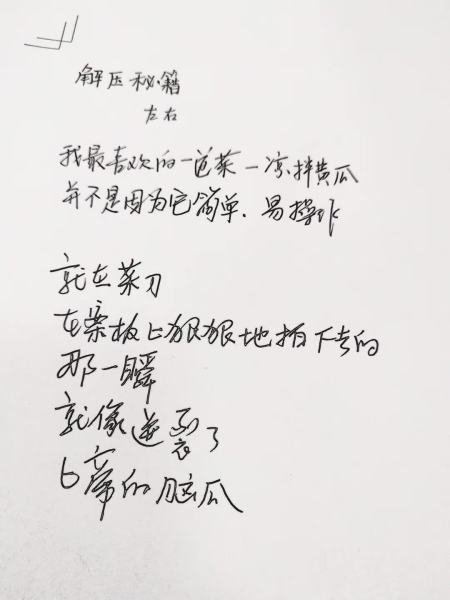 解压秘籍
左右
我最喜欢的一道菜一凉拌黄瓜
并不是因为它简单、易操作
就在菜刀
在案板上狠狠地拍下去的
那一瞬
就像逆袭了
上帝的脑瓜